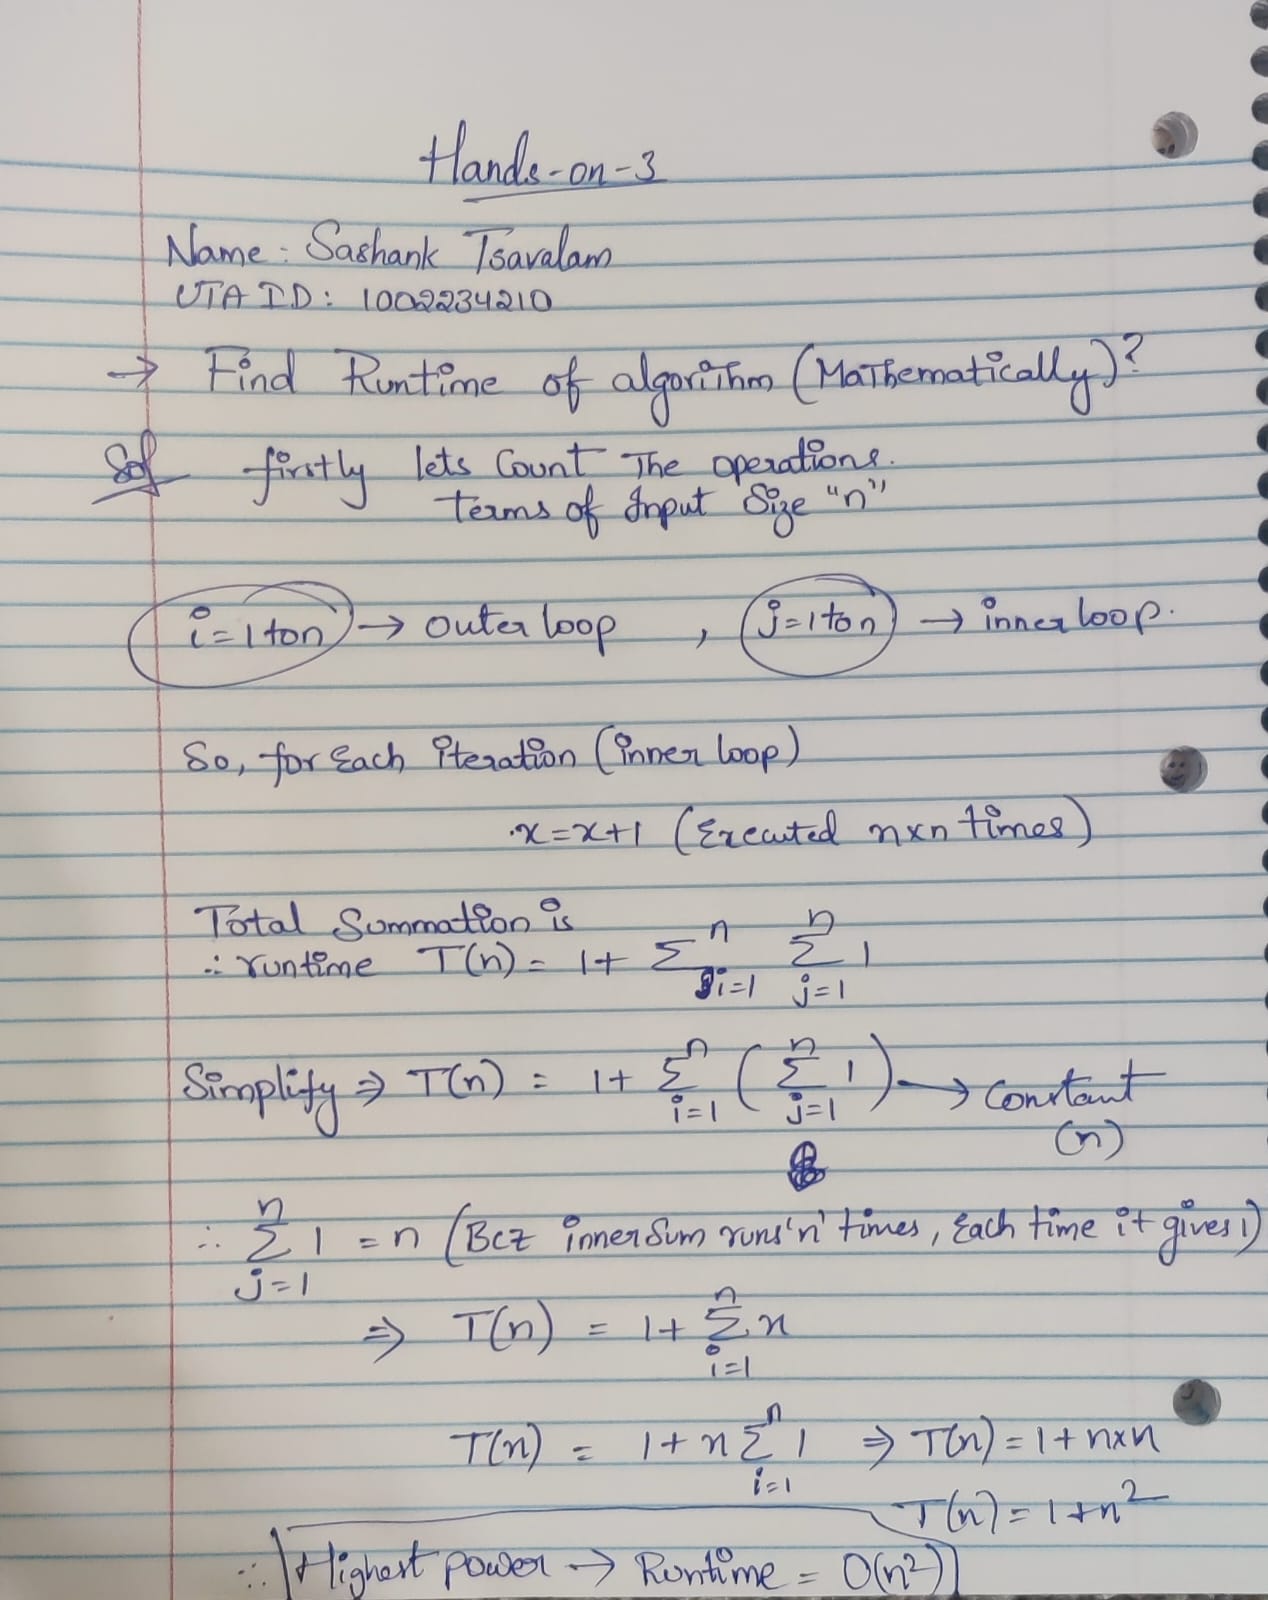 Hands-on-3
Name: Sashank Tsavalam
UTA ID: 1002234210
→ Find Runtime of algorithm (Mathematically)?
Sol firstly lets Count The operations.
terms of Input Size "n"
i=1 to n → outer loop , j=1 to n → inner loop.
So, for Each iteration (inner loop)
x=x+1 (Executed n×n times)
Total Summation is
∴ runtime T(n) = 1+ Σ_{i=1}^{n} Σ_{j=1}^{n} 1
Simplify ⇒ T(n) = 1+ Σ_{i=1}^{n} (Σ_{j=1}^{n} 1) → Constant (n)
∴ Σ_{j=1}^{n} 1 = n (Bcz inner Sum runs 'n' times, Each time it gives 1)
⇒ T(n) = 1+ Σ_{i=1}^{n} n
T(n) = 1+ n Σ_{i=1}^{n} 1 ⇒ T(n) = 1+ n×n
T(n) = 1+n²
∴ Highest power → Runtime = O(n²)